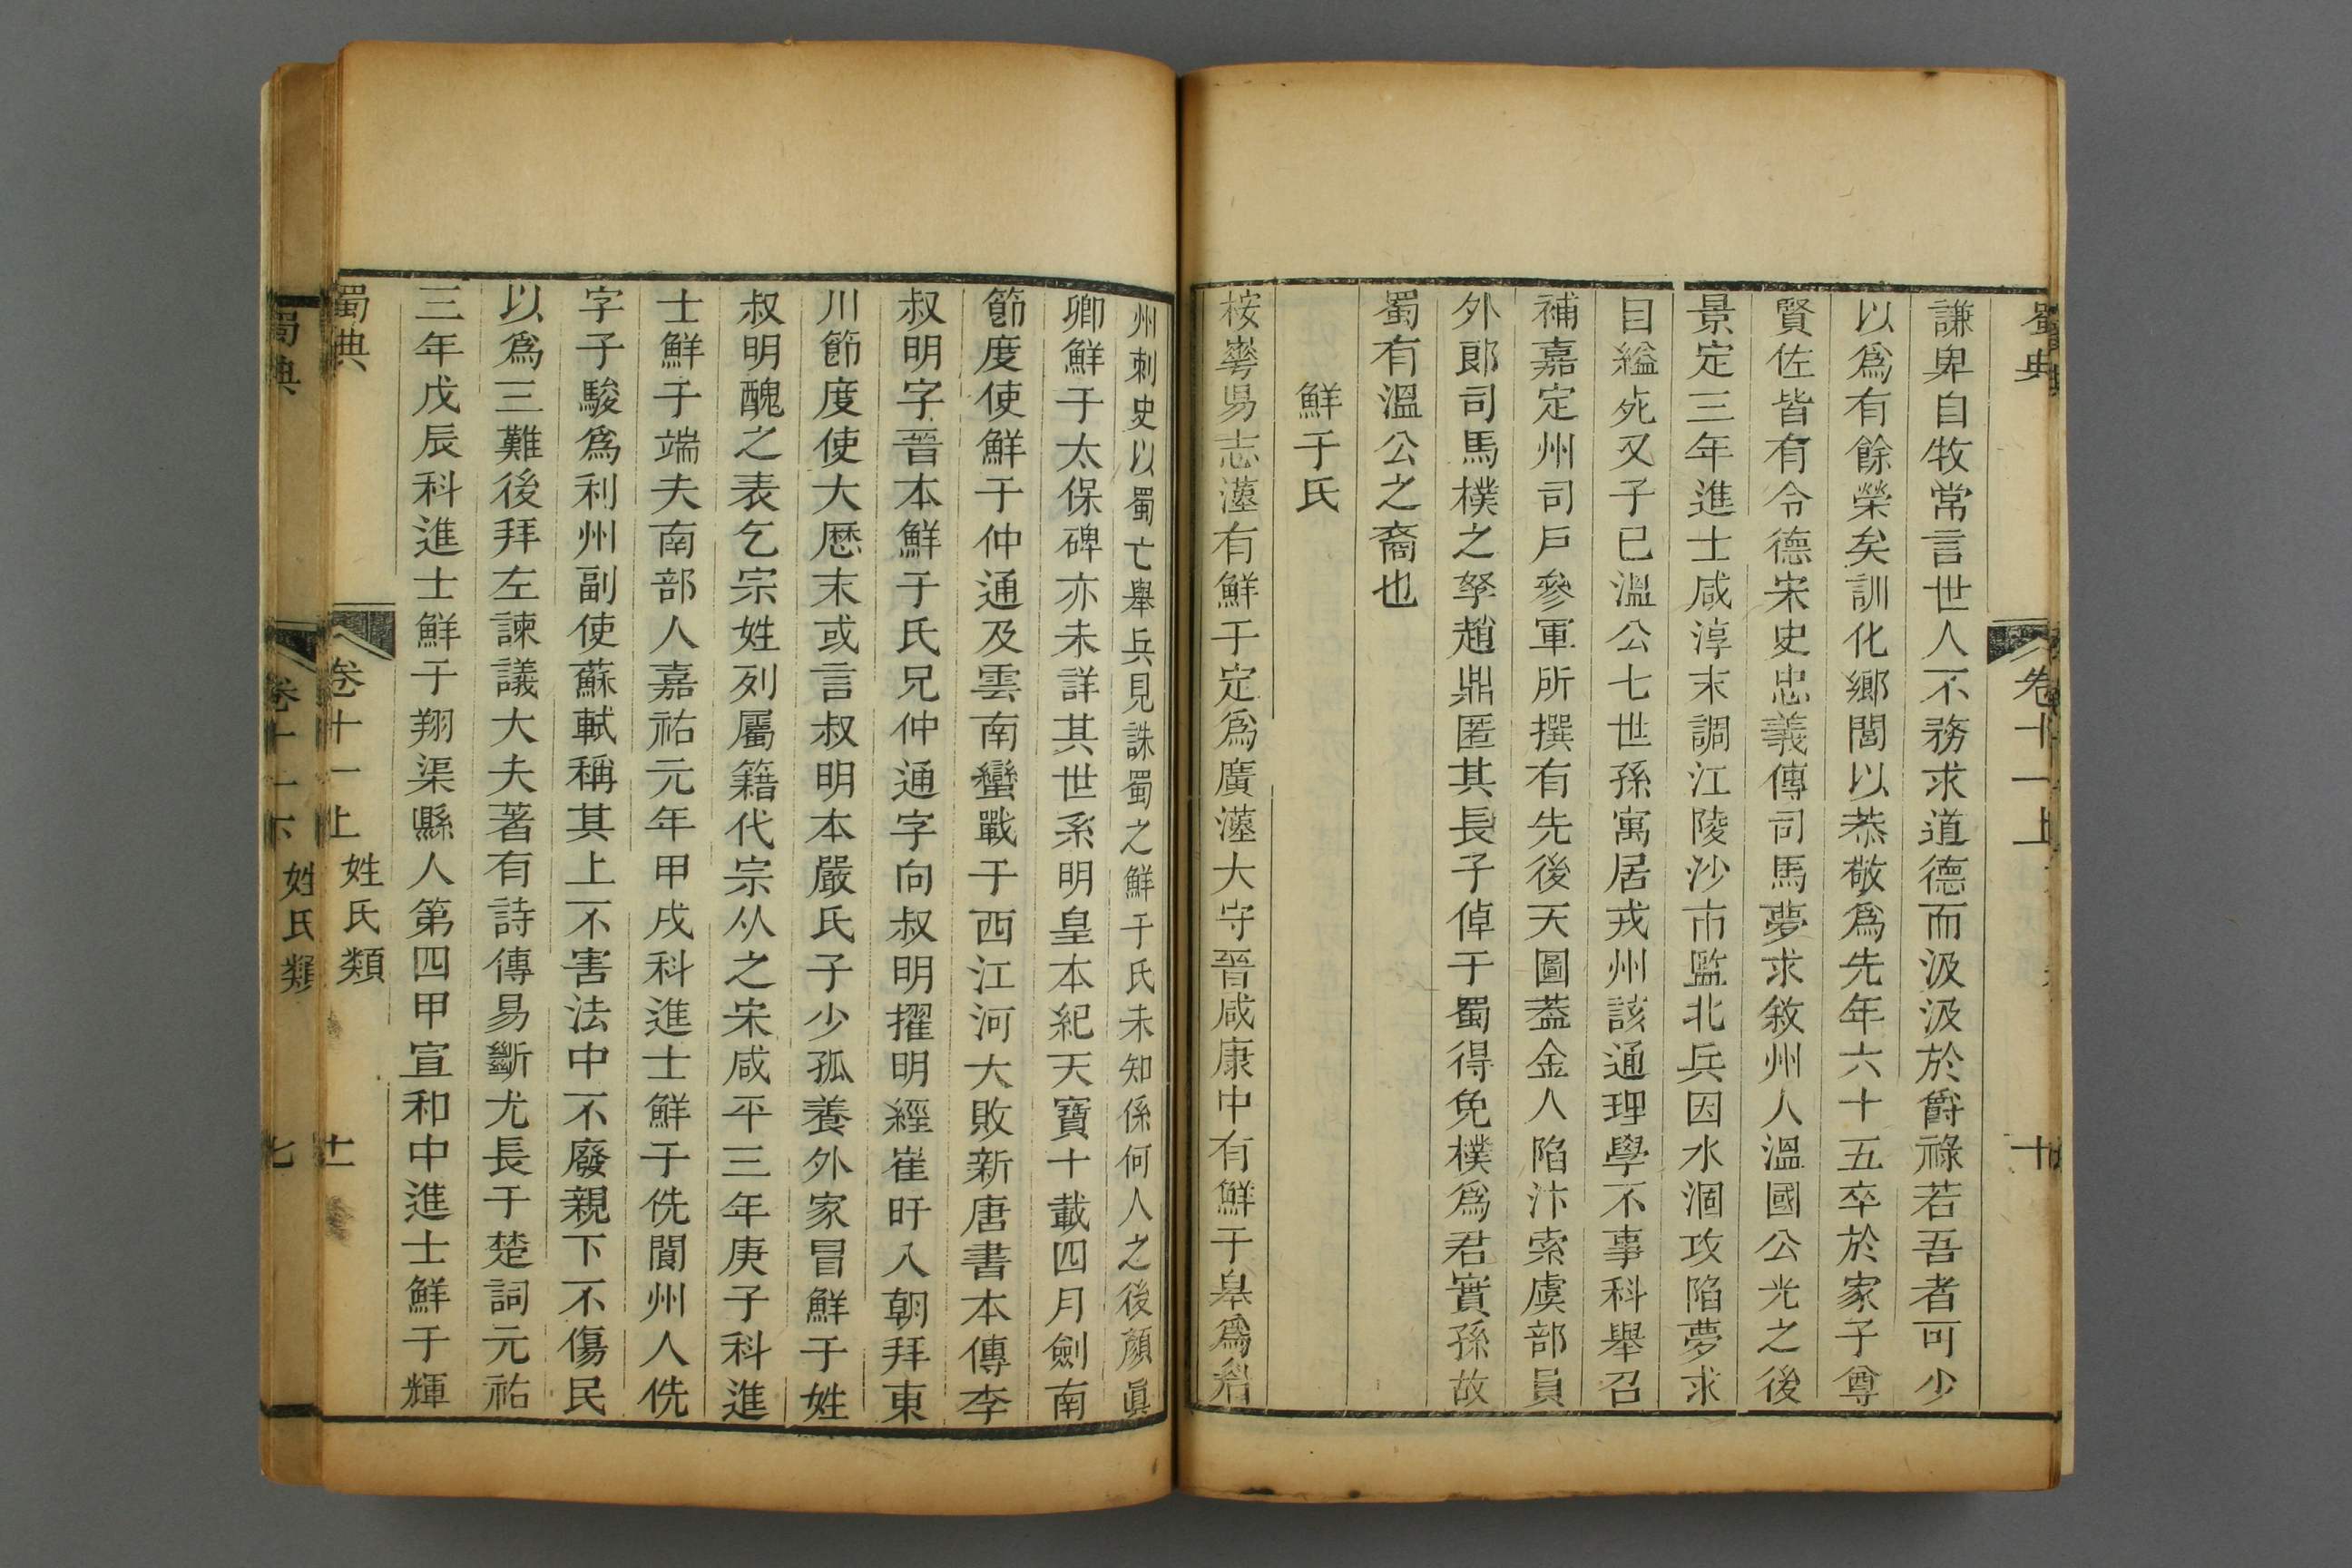 蜀典 卷十一上 十
謙卑自牧常言世人不務求道德而汲汲於爵祿若吾者可少
以爲有餘榮矣訓化鄉閭以恭敬爲先年六十五卒於家子尊
賢佐皆有令德宋史忠義傳司馬夢求敘州人溫國公光之後
景定三年進士咸淳末調江陵沙市監北兵因水涸攻陷夢求
自縊死又子已溫公七世孫寓居戎州該通理學不事科舉召
補嘉定州司戶參軍所撰有先後天圖葢金人陷汴索虞部員
外郎司馬樸之孥趙鼎匿其長子倬于蜀得免樸爲君實孫故
蜀有溫公之裔也
鮮于氏
桉華昜志漢有鮮于定爲廣漢大守晉咸康中有鮮于臯爲
州刺史以蜀亡舉兵見誅蜀之鮮于氏未知係何人之後顏眞
卿鮮于太保碑亦未詳其世系明皇本紀天寶十載四月劍南
節度使鮮于仲通及雲南蠻戰于西江河大敗新唐書本傳李
叔明字晉本鮮于氏兄仲通字向叔明擢明經崔旰入朝拜東
川節度使大厯末或言叔明本嚴氏子少孤養外家冒鮮于姓
叔明醜之表乞宗姓列屬籍代宗从之宋咸平三年庚子科進
士鮮于端夫南部人嘉祐元年甲戌科進士鮮于侁閬州人侁
字子駿爲利州副使蘇軾稱其上不害法中不廢親下不傷民
以爲三難後拜左諫議大夫著有詩傳易斷尤長于楚詞元祐
三年戊辰科進士鮮于翔渠縣人第四甲宣和中進士鮮于輝
蜀典 卷十一上 姓氏類 十一
蜀典 卷十一下 姓氏類 七